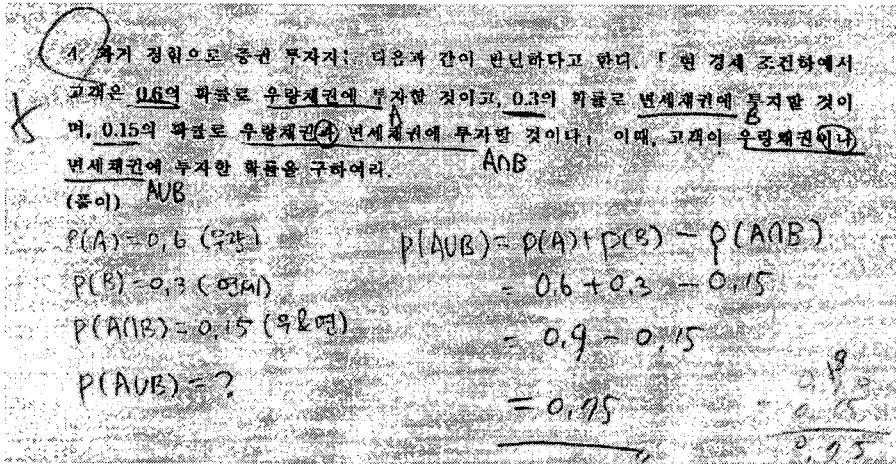 1. 과거 경험으로 증권 투자자는 다음과 같이 판단하다고 한다. 「현 경제 조건하에서
고객은 0.6의 확률로 우량채권에 투자할 것이고, 0.3의 확률로 면세채권에 투자할 것이
며, 0.15의 확률로 우량채권과 면세채권에 투자할 것이다」 이때, 고객이 우량채권이나
면세채권에 투자할 확률을 구하여라.
A
B
A∩B
A∪B
(풀이)
P(A)=0.6 (우량)
P(B)=0.3 (면세)
P(A∩B)=0.15 (우&면)
P(A∪B)=?
P(A∪B)=P(A)+P(B)-P(A∩B)
= 0.6+0.3 -0.15
= 0.9 - 0.15
= 0.75